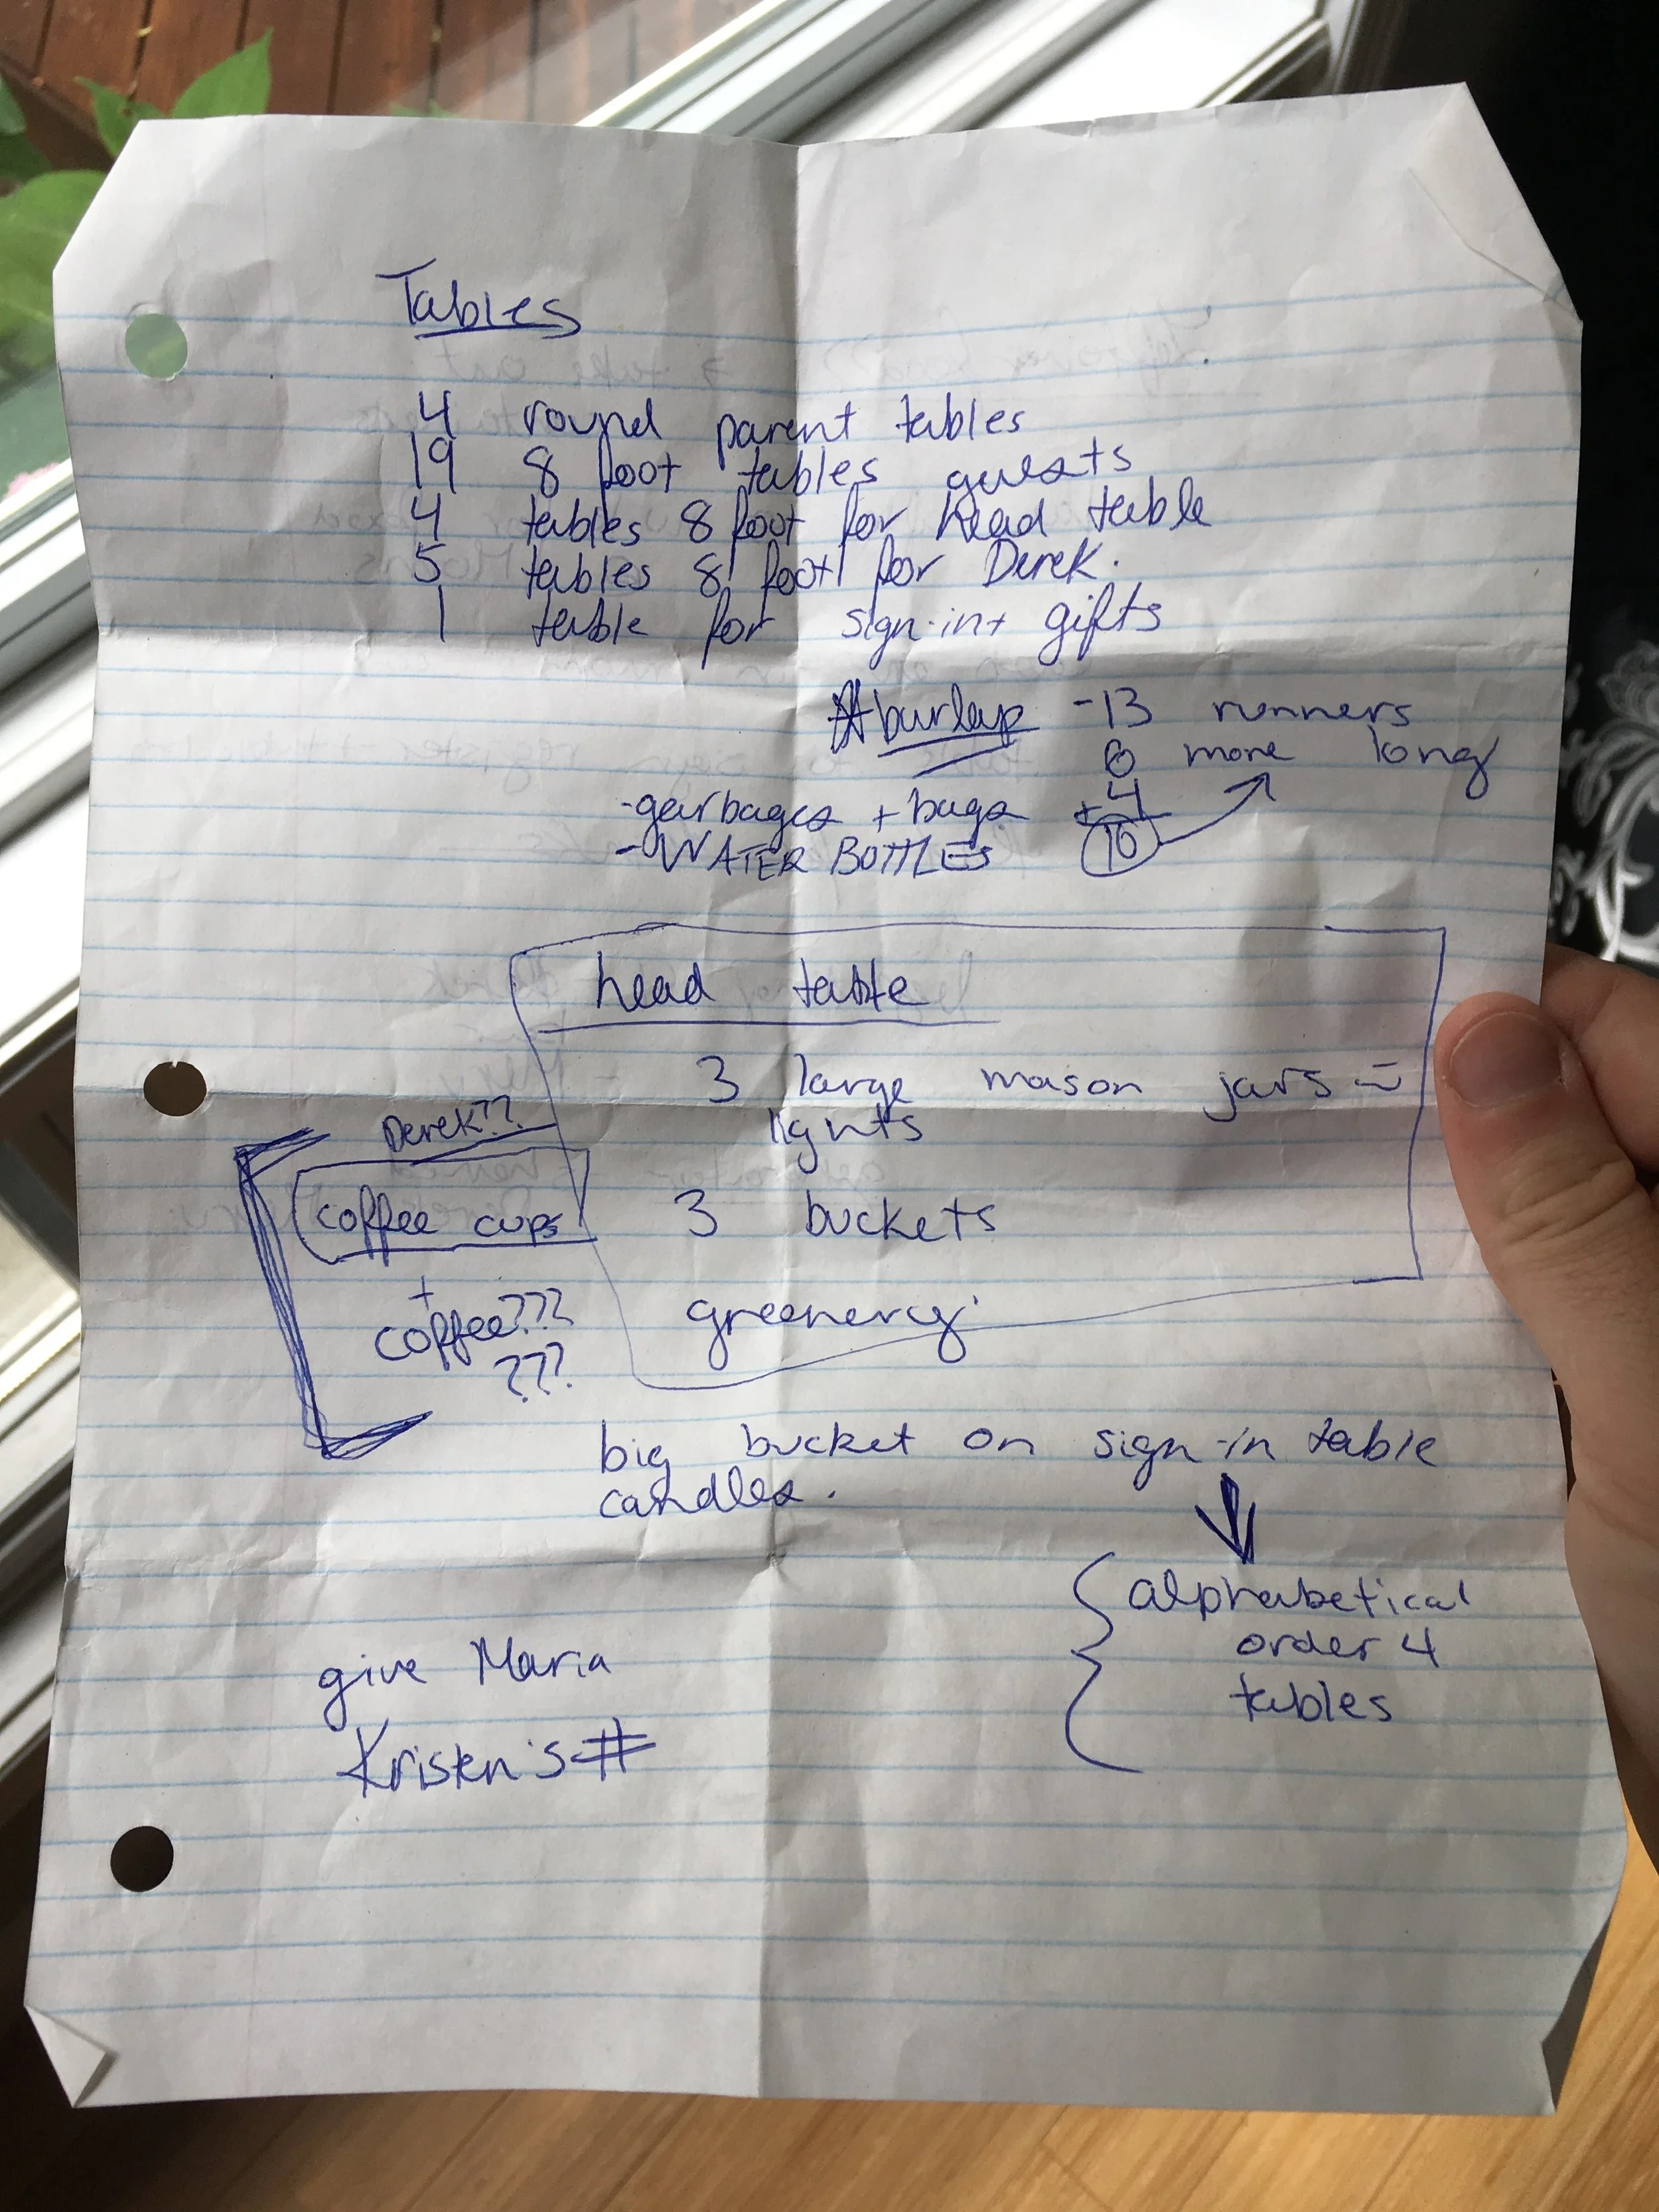 Tables
4 round parent tables
19 8 foot tables guests
4 tables 8 foot for head table
5 tables 8 foot for Derek.
1 table for sign-in + gifts
burlap - 13 runners
6 more long
+ 4
10
- garbages + bags
- WATER BOTTLES
head table
3 large mason jars =
lights
3 buckets
greenery
Derek??
coffee cups
+
coffee???
???
big bucket on sign-in table
candles.
alphabetical
order 4
tables
give Maria
Kristen's #